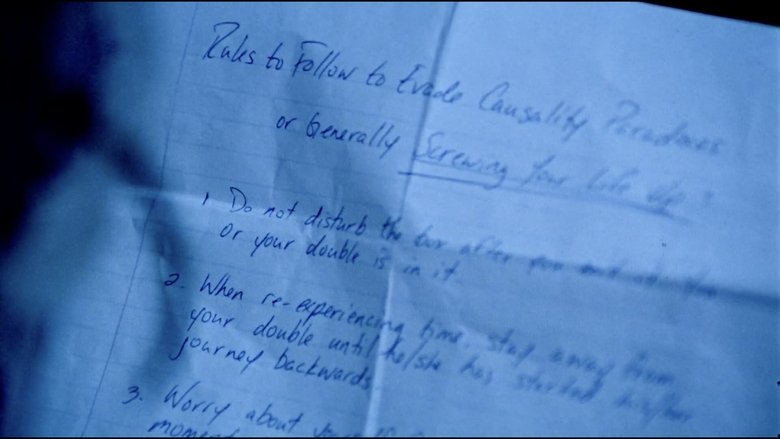 Rules to Follow to Evade Causality Paradoxes
or Generally Screwing Your Life Up
1 Do not disturb the box after you
or your double is in it.
2. When re-experiencing time, stay away from
your double until he/she has started his/her
journey backwards
3. Worry about